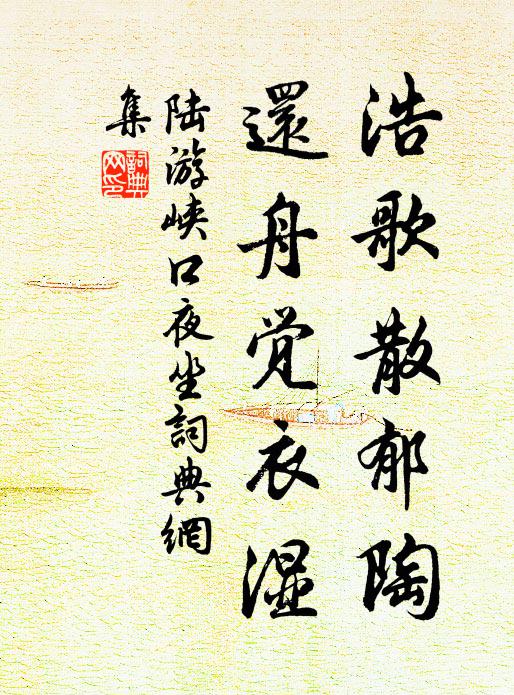 浩歌散郁陶
還舟觉衣湿
陆游峡口夜坐詞典網
集
詞典
网印